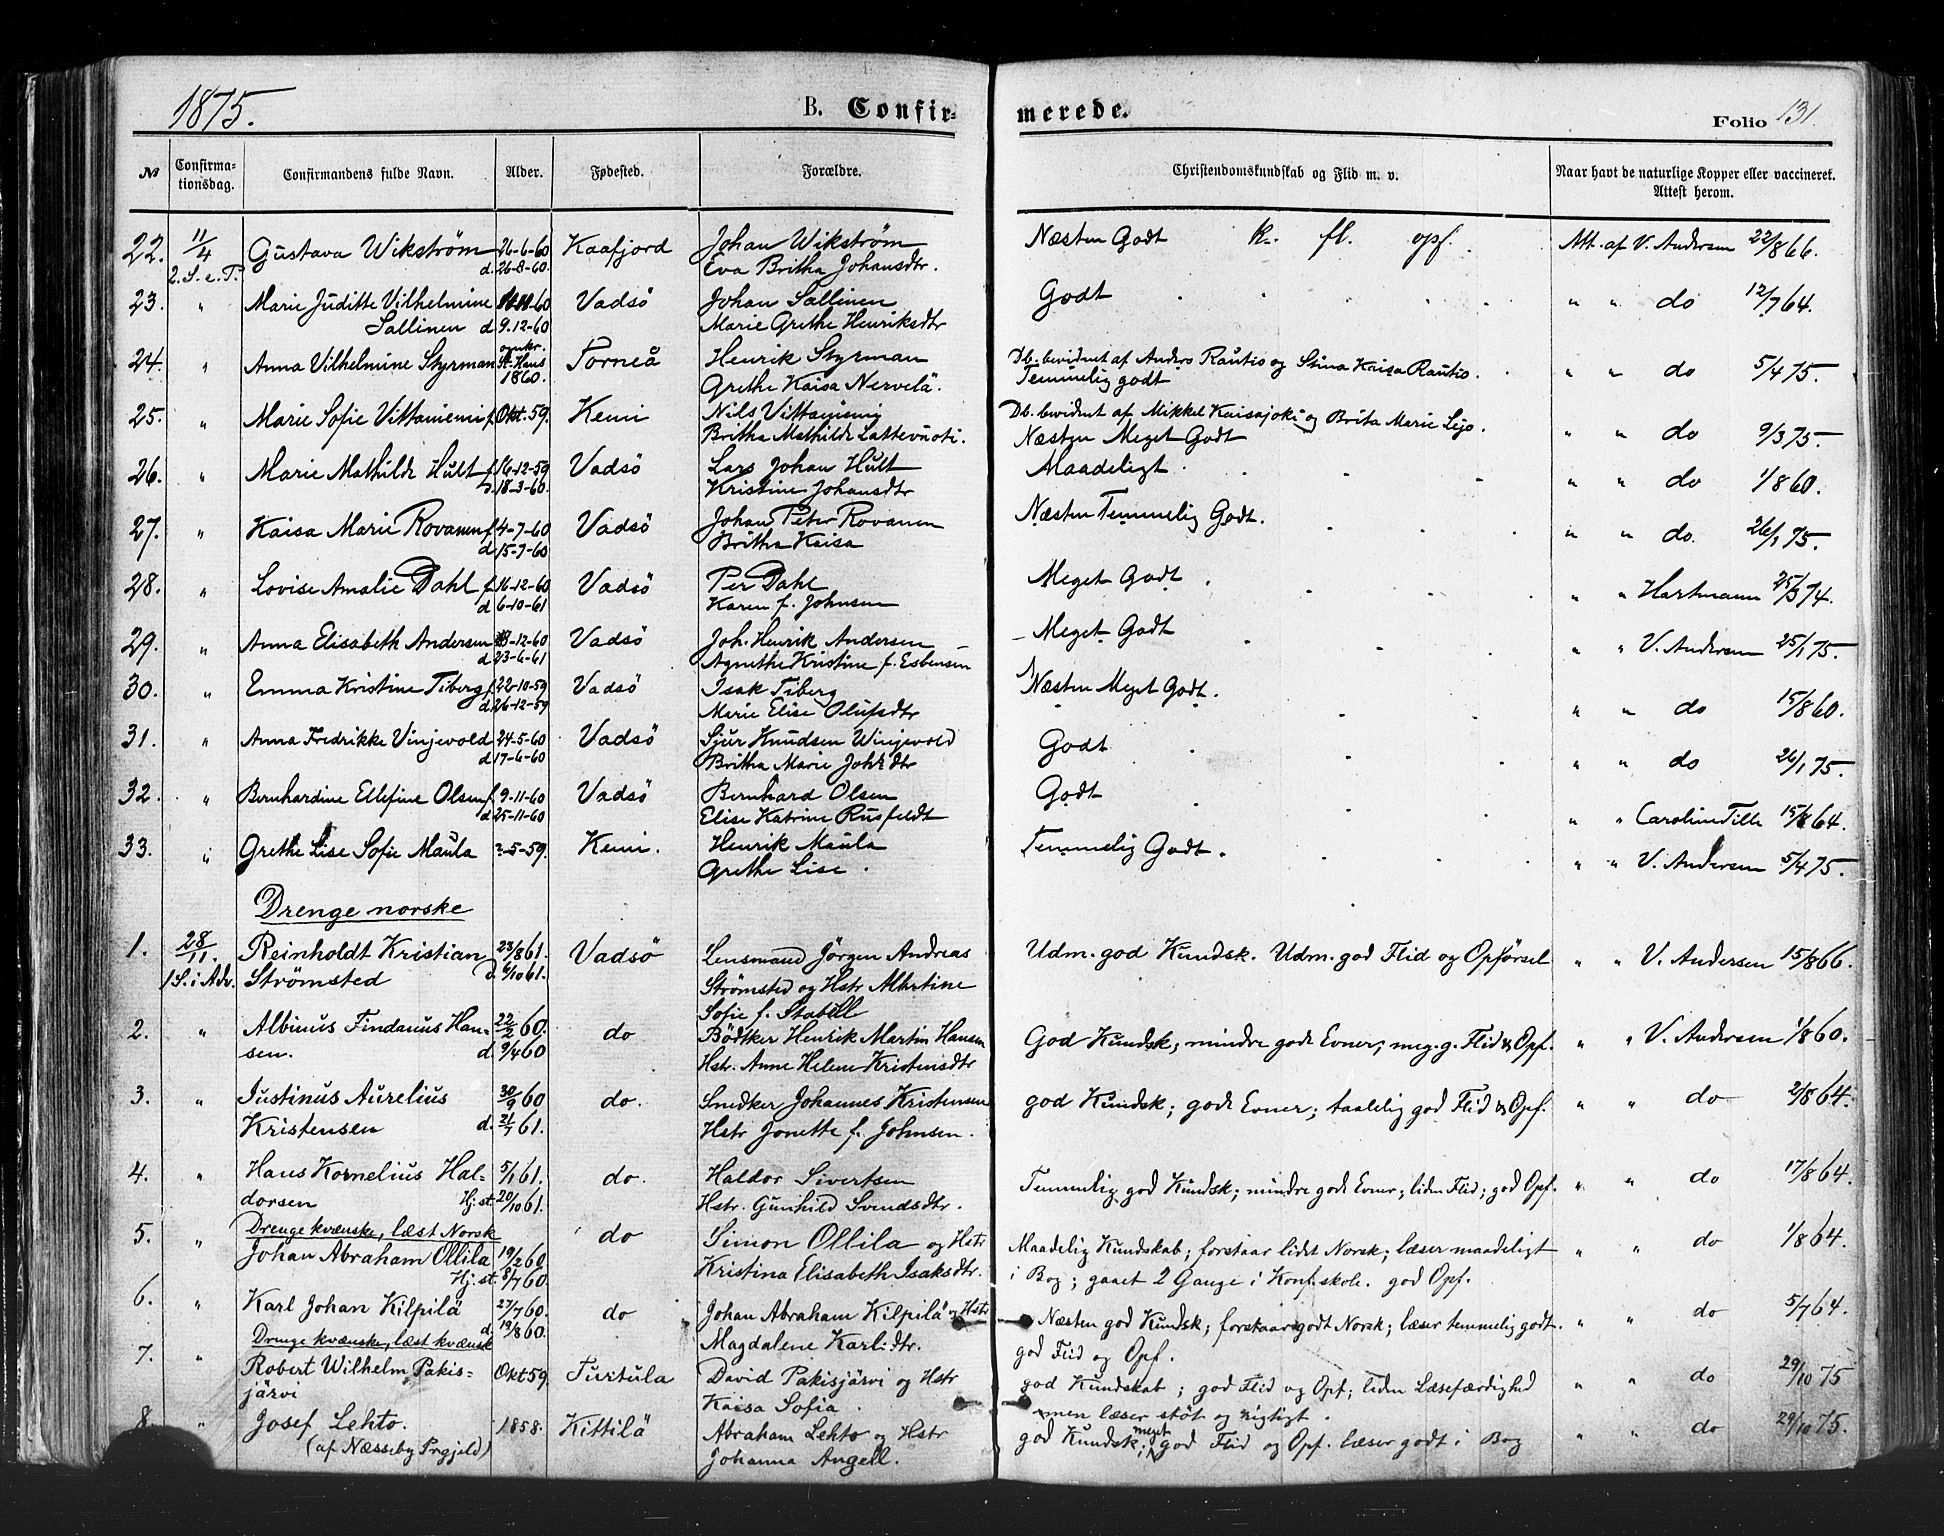 1875.
B. Confirmerede.
Folio 131
№ Confirmationsdag. Confirmandens fulde Navn. Alder. Fødested. Forældre. Christendomskundskab og Flid m. v. Naar havt de naturlige Kopper eller vaccineret. Attest herom.
22. 11/4 Gustava Wikström 26-6-60 Kaafjord Johan Wikström Næsten Godt k. fl. opf. Att. af V. Andersen 22/8 66.
2. S. e. P. d. 26-8-60. Eva Britha Johansdtr.
23. " Marie Juditte Vilhelmine 11-60 Vadsö Johan Sallinen Godt " " do 12/7 64.
Sallinen d. 9-12-60 Marie Grethe Henriksdtr
24. " Anna Vilhelmine Styrman omkr. St. Hans 1860. Torneå Henrik Styrman Db. bevidnet af Anders Rautio og Stina Kaisa Rautio. " " do 5/4 75.
Grethe Kaisa Nervelä. Temmelig godt
25. " Marie Sofie Vittaniemi f. Okt. 59. Kemi Nils Vittaniemi Db. bevidnet af Mikkel Kaisajoki og Brita Marie Lejo. " " do 9/3 75.
Britha Mathilde Lattevuoti. Næsten Meget Godt
26. " Marie Mathilde Hult f. 16-12-59 Vadsö Lars Johan Hult Maadeligt " " do 1/8 60.
D. 18-3-60. Kristine Johansdtr
27. " Kaisa Marie Rovanen f. 4-7-60 Vadsö Johan Peter Rovanen Næsten Temmelig Godt. " " do. 26/1 75.
d. 15-7-60 Britha Kaisa
28. " Lovise Amalie Dahl f. 16-12-60 Vadsö Per Dahl Meget Godt " " Hartmann 25/3 74.
d. 6-10-61 Karen f. Johnsen
29. " Anna Elisabeth Andersen 3-12-60 Vadsö Joh. Henrik Andersen Meget Godt " " V. Andersen 25/1 75.
d. 23-6-61 Agnethe Kristine f. Esbensen
30. " Emma Kristine Tiberg f. 22-10-59 Vadsö Isak Tiberg Næsten Meget Godt. " " do 15/8 60.
d. 26-12-59 Marie Elise Olufsdtr
31. " Anna Fredrikke Vinjevold 24-5-60 Vadsö Sjur Knudsen Winjevold Godt " " do 26/1 75.
d. 17-6-60 Britha Marie Johs dtr
32. " Bernhardine Ellefine Olsen f. 9-11-60 Vadsö Bernhard Olsen Godt " " Caroline Tille 15/8 64.
d. 25-11-60 Elise Katrine Rusfeldt
33. " Grethe Lise Sofie Maula ?-5-59. Kemi. Henrik Maula Temmelig Godt. " " V. Andersen 5/4 75.
Grethe Lise.
Drenge norske
1. 28/11. Reinholdt Kristian 23/8 61. Vadsö Lensmand Jörgen Andreas Udm. god Kundsk. Udm. god Flid og Opförsel " " V. Andersen 15/8 66.
1 S. i Adv. Strömsted D. 6/10 61. Strömsted og Hstr Albertine
Sofie f. Stabell
2. " Albinus Findanus Han- 22/2 60. do Bödtker Henrik Martin Hansen God Kundsk; mindre gode Evner; meg. g. Flid & Opf. " " V. Andersen 1/8 60.
sen. d. 9/4 60 Hstr. Anne Helene Kristensdtr
3. " Justinus Aurelius 30/9 60 do. Snedker Johannes Kristensen god Kundsk; gode Evner; taalelig god Flid & Opf. " " do 2/8 64.
Kristensen d. 21/7 61. Hstr Jonette f. Johnsen.
4. " Hans Kornelius Hal- 5/1 61. do. Haldor Sivertsen Temmelig god Kundsk; mindre gode Evner; liden Flid; god Opf. " " do 17/8 64.
dorsen Hj. st. 20/10 61. Hstr. Gunhild Svendsdtr.
Drenge kvænske, læst Norsk
5. " Johan Abraham Ollila 19/2 60. do Simon Ollila og Hstr Maadelig Kundskab; forstaar lidet Norsk; læser maadeligt " " do 1/8 64.
Hj. st. 8/7 60. Kristina Elisabeth Isaksdtr. i Bog; gaaet 2 Gange i Konf.skole. god Opf.
6. " Karl Johan Kilpilä 27/7 60. do Johan Abraham Kilpilä og Hstr Næsten god Kundsk; forstaar godt Norsk; læser temmelig godt. " " do 5/7 64.
d. 19/8 60. Magdalene Karl:dtr. god Flid og Opf.
Drenge kvænske, læst kvænsk
7. " Robert Wilhelm Pakis- Okt 59. Turtula David Pakisjärvi og Hstr god Kundskab; god Flid og Opf; liden Læsefærdighed " " do 29/10 75
järvi Kaisa Sofia. men læser støt og rigtigt.
8. " Josef Lehto. 1858. Kittilä Abraham Lehto og Hstr god Kundsk; meget god Flid og Opf. læser godt i Bog " " do 29/10 75.
(af Næsseby Prgjeld) Johanna Angell.